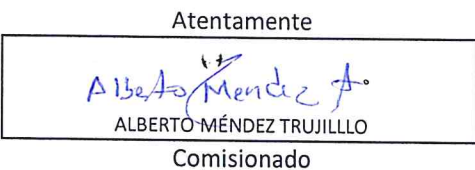 Atentamente
Alberto Mendez
ALBERTO MÉNDEZ TRUJILLLO
Comisionado